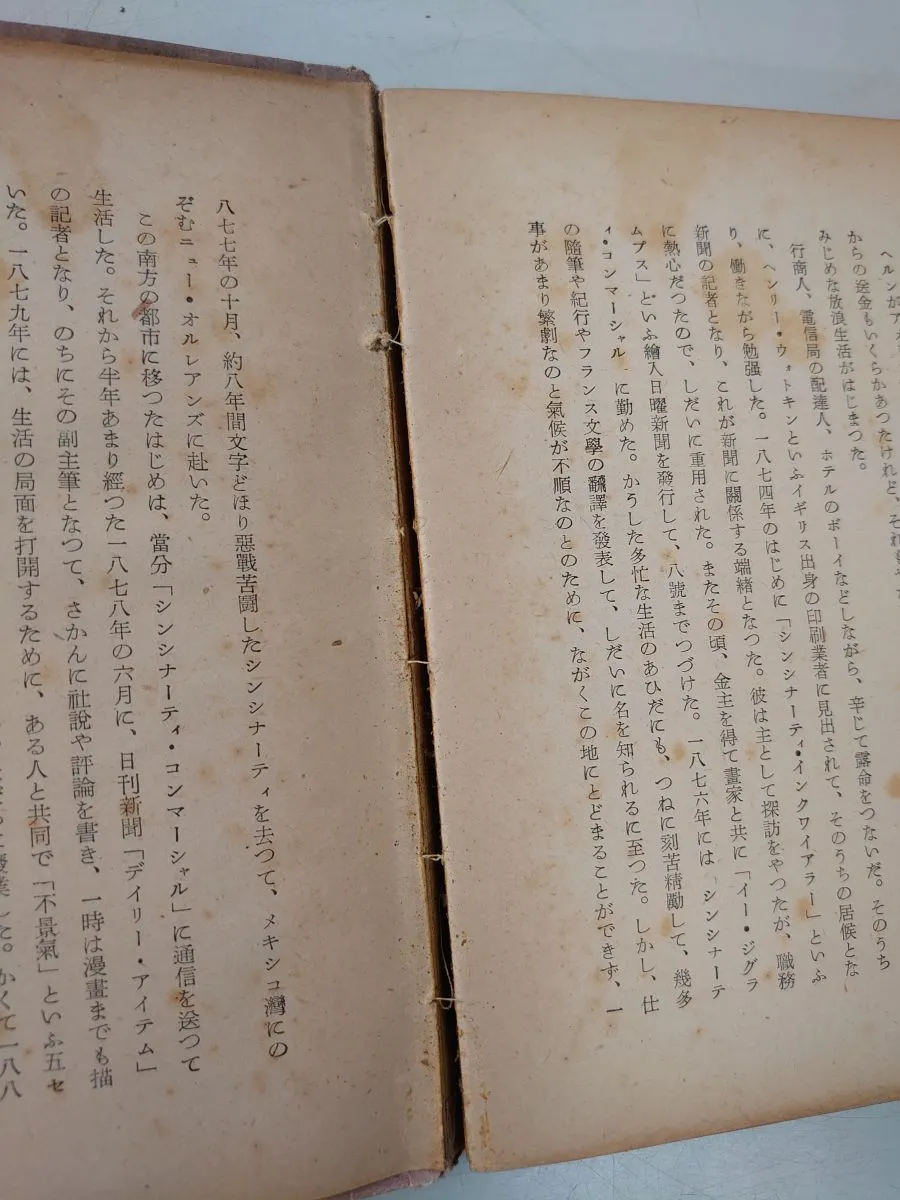 ヘルンがア
からの送金もいくらかあつたけれど、それ
みじめな放浪生活がはじまつた。
行商人、電信局の配達人、ホテルのボーイなどしながら、辛じて露命をつないだ。そのうち
に、ヘンリー・ウォトキンといふイギリス出身の印刷業者に見出されて、そのうちの居候とな
り、働きながら勉强した。一八七四年のはじめに「シンシナーティ・インクワイアラー」といふ
新聞の記者となり、これが新聞に關係する端緒となつた。彼は主として探訪をやつたが、職務
に熱心だつたので、しだいに重用された。またその頃、金主を得て畫家と共に「イー・ジグラ
ムプス」といふ繪入日曜新聞を發行して、八號までつづけた。一八七六年には シンシナーテ
ィ・コンマーシャル に勤めた。かうした多忙な生活のあひだにも、つねに刻苦精勵して、幾多
の隨筆や紀行やフランス文學の飜譯を發表して、しだいに名を知られるに至つた。しかし、仕
事があまり繁劇なのと氣候が不順なのとのために、ながくこの地にとどまることができず、一
八七七年の十月、約八年間文字どほり惡戰苦闘したシンシナーティを去つて、メキシコ灣にの
ぞむニュー・オルレアンズに赴いた。
この南方の都市に移つたはじめは、當分「シンシナーティ・コンマーシャル」に通信を送つて
生活した。それから半年あまり經つた一八七八年の六月に、日刊新聞「デイリー・アイテム」
の記者となり、のちにその副主筆となつて、さかんに社說や評論を書き、一時は漫畫までも描
いた。一八七九年には、生活の局面を打開するために、ある人と共同で「不景氣」といふ五セ
した。かくて一八八